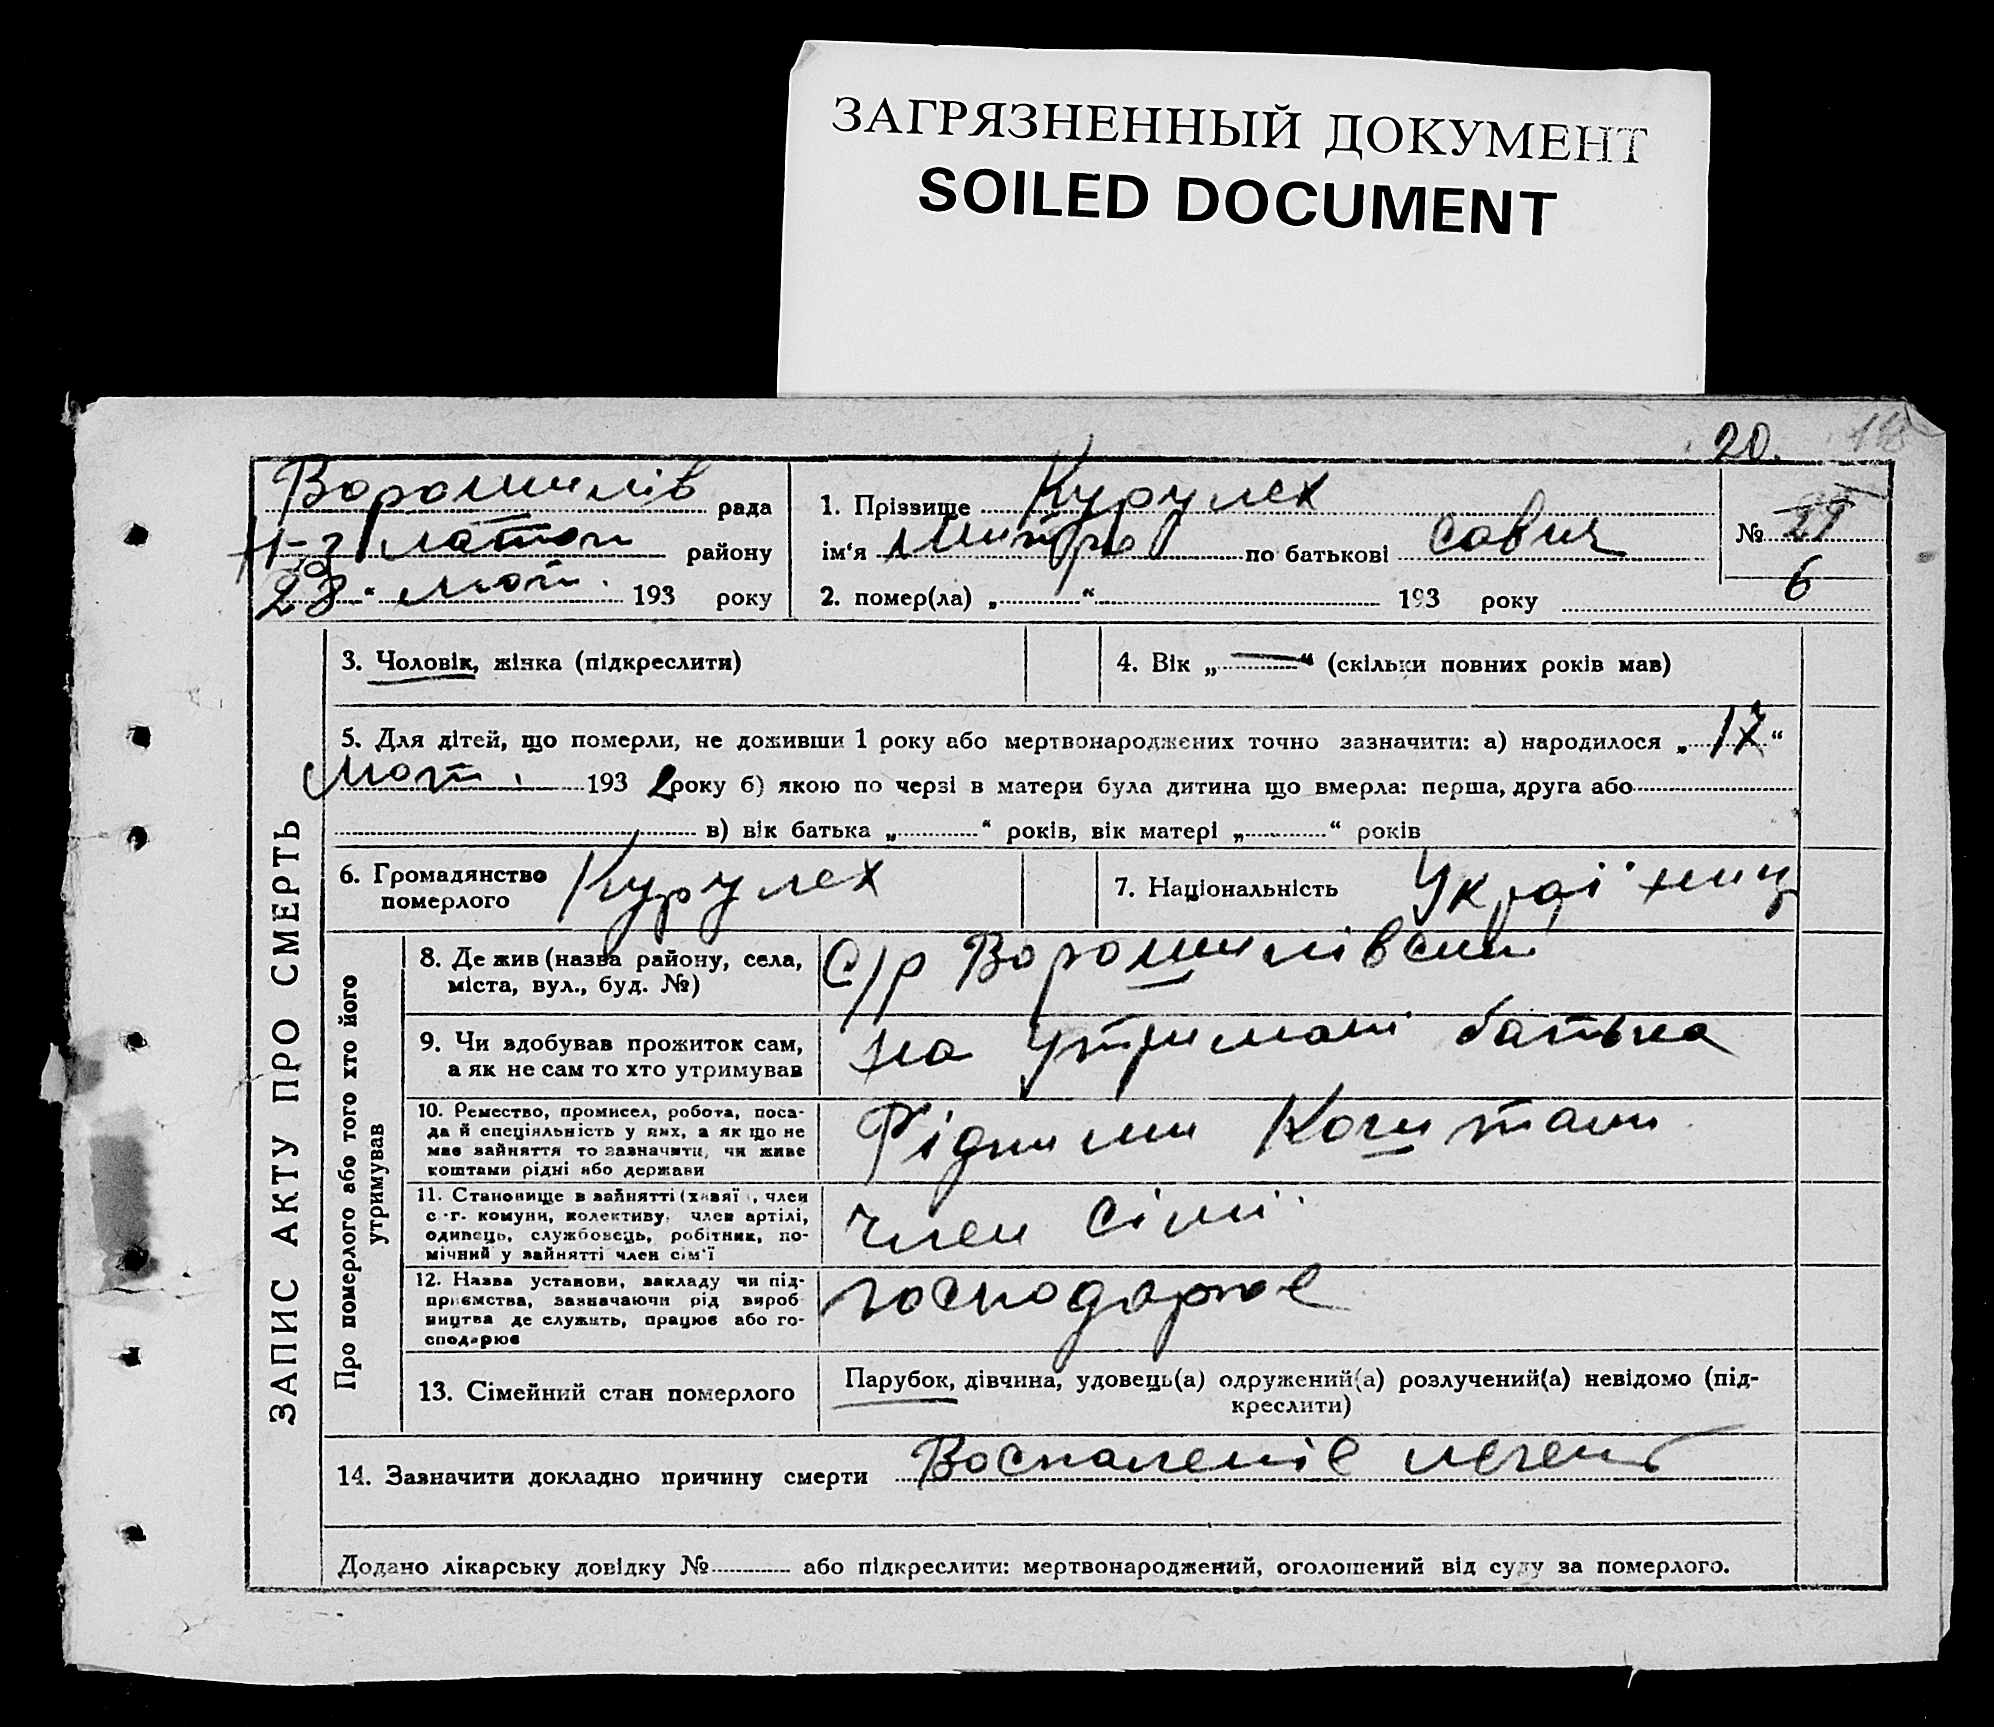 ЗАГРЯЗНЕННЫЙ ДОКУМЕНТ
SOILED DOCUMENT
20.
Ворошилів рада
Н-Златоп району
28 " 193 року
1. Прізвище Курулех
ім'я Митро по батькові Савич
№ 6
2. помер(ла) „ “ 193 року
ЗАПИС АКТУ ПРО СМЕРТЬ
3. Чоловік, жінка (підкреслити)
4. Вік „—“ (скільки повних років мав)
5. Для дітей, що померли, не доживши 1 року або мертвонароджених точно зазначити: а) народилося „17“
193 2 року б) якою по черзі в матери була дитина що вмерла: перша, друга або
в) вік батька „ “ років, вік матері „ “ років
6. Громадянство померлого Курулех
7. Національність Україниц
Про померлого або того хто його утримував
8. Де жив (назва району, села,
міста, вул., буд. №) С/р Ворошилівски
9. Чи здобував прожиток сам,
а як не сам то хто утримував на утримані батька
10. Ремество, промисел, робота, поса-
да й спеціяльність у них, а як що не
має зайняття то зазначити, чи живе
коштами рідні або держави Рідними Коштами
11. Становище в зайнятті (хазяї, член
с.-г. комуни, колективу, член артілі,
одинець, службовець, робітник, по-
мічний у зайнятті член сім'ї член сімї
12. Назва установи, закладу чи під-
приємства, зазначаючи рід вироб
ництва де служить, працює або го-
сподарює господарює
13. Сімейний стан померлого Парубок, дівчина, удовець(а) одружений(а) розлучений(а) невідомо (під-
креслити)
14. Зазначити докладно причину смерти Воспаленіе печень
Додано лікарську довідку № або підкреслити: мертвонароджений, оголошений від суду за померлого.